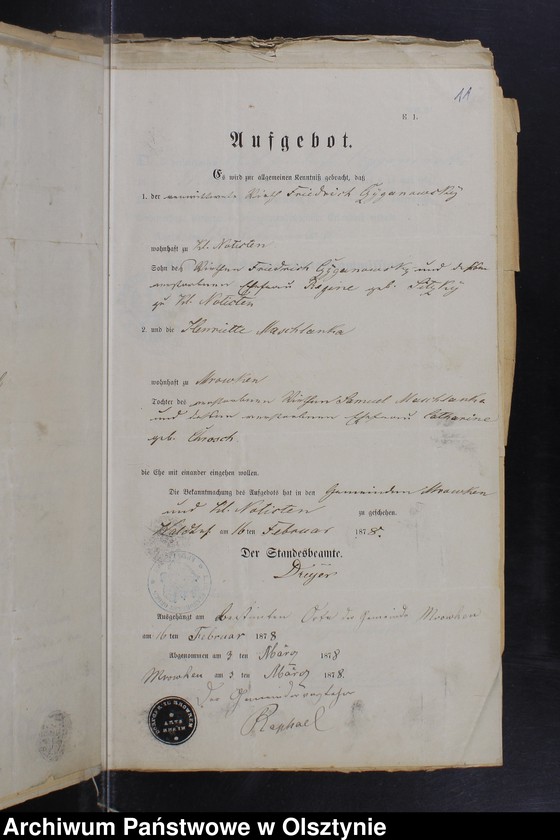 11
E 1.
Aufgebot.
Es wird zur allgemeinen Kenntniß gebracht, daß
1. der verwittwete Wirth Friedrich Czyganowsky
wohnhaft zu Kl. Notisten
Sohn des Wirthen Friedrich Czyganowsky und dessen
verstorbenen Ehefrau Regine geb.
zu Kl. Notisten
2. und die Henriette Maschlanka
wohnhaft zu Mrowken
Tochter des verstorbenen Wirthen Samuel Maschlanka
und dessen verstorbenen Ehefrau Catharine
geb. Chrosch
die Ehe mit einander eingehen wollen.
Die Bekanntmachung des Aufgebots hat in den Gemeinden Mrowken
und Kl. Notisten zu geschehen.
am 16 ten Februar 1878.
Der Standesbeamte.
Dreyer
Ausgehängt am bestimmten Orte der Gemeinde Mrowken
am 16 ten Februar 1878
Abgenommen am 3 ten März 1878
Mrowken am 3 ten März 1878.
Der Gemeindevorsteher
Raphael
Archiwum Państwowe w Olsztynie